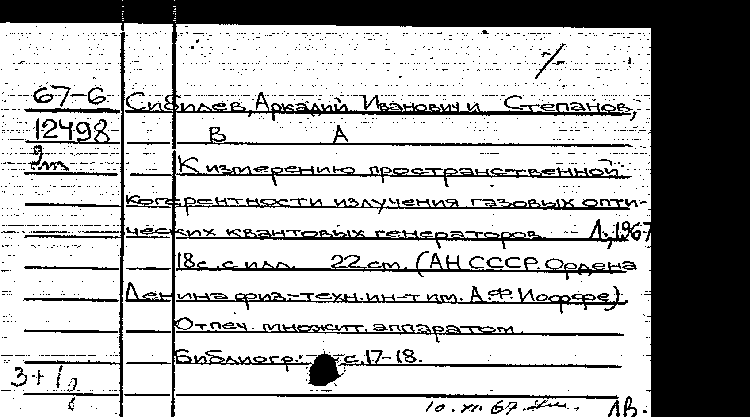 67-6 Сибилев, Аркадий Иванович и Степанов,
12498 В А
К измерению пространственной
когерентности излучения газовых опти-
ческих квантовых генераторов. Л., 1967
18с. с илл. 22 см. (АН СССР. Ордена
Ленина физ.-техн. ин-т им. А.Ф. Иоффе).
Отпеч. множит. аппаратом.
Библиогр.: с.17-18.
3+1
10.VII.67 ЛВ.